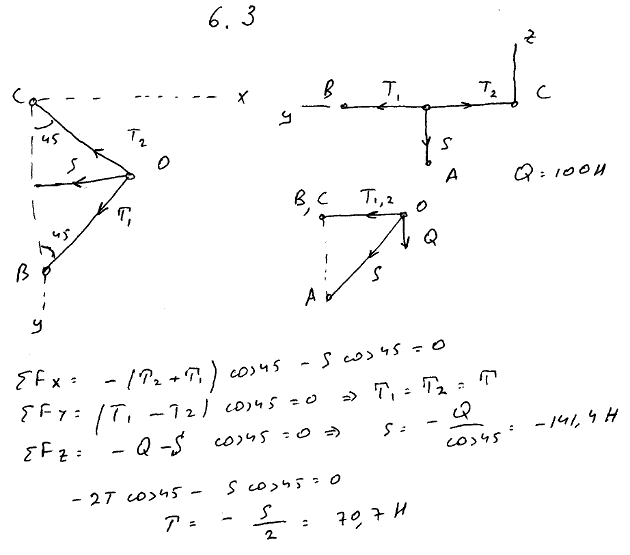 6.3
C
x
45
T2
O
S
T1
45
B
y
z
B
T1
T2
C
y
S
A
Q = 100 Н
B, C
T1,2
O
Q
S
A
ΣFx = -(T2 + T1) cos45 - S cos45 = 0
ΣFy = (T1 - T2) cos45 = 0 => T1 = T2 = T
ΣFz = -Q - S cos45 = 0 => S = - Q/cos45 = -141,4 Н
-2T cos45 - S cos45 = 0
T = - S/2 = 70,7 Н